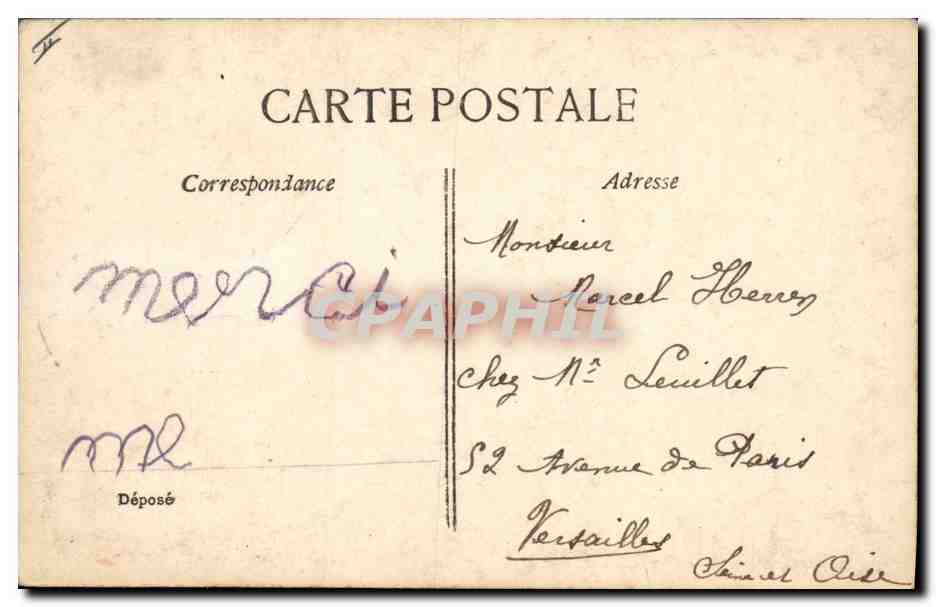 CARTE POSTALE
Correspondance
Adresse
merci
Déposé
Monsieur
Marcel Herren
chez Mr Leuillet
52 Avenue de Paris
Versailles
Seine et Oise
CPAPHIL